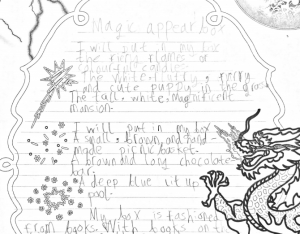 Magic appear box
I will put in my box
the firey flames of
colourful
The white, fluffy, 
and cute puppy in the grass
The tall, white, magnificent
mansion.
I will put in my box
a small, brown, and hand-
made picnic basket.
A brown and long chocolate
bar.
A deep blue lit up
pool.
My box is fashioned
from books. With books on t